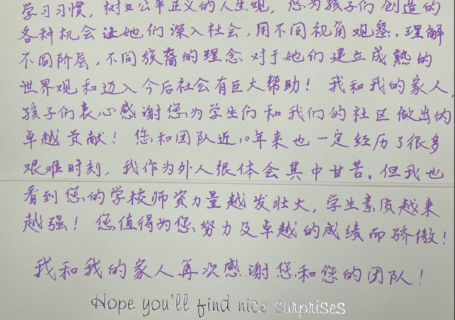 学习习惯，树立公平正义的人生观，您为孩子们创造的
各种机会让她们深入社会，用不同视角观察，理解
不同阶层，不同族裔的理念对于她们建立成熟的
世界观和迈入今后社会有巨大帮助！我和我的家人，
孩子们衷心感谢您为学生们和我们的社区做出的
卓越贡献！您和团队近10年来也一定经历了很多
艰难时刻，我作为外人很体会其中甘苦。但我也
看到您的学校师资力量越发壮大，学生素质越来
越强！您值得为您努力及卓越的成绩而骄傲！
我和我的家人再次感谢您和您的团队！
Hope you'll find nice surprises